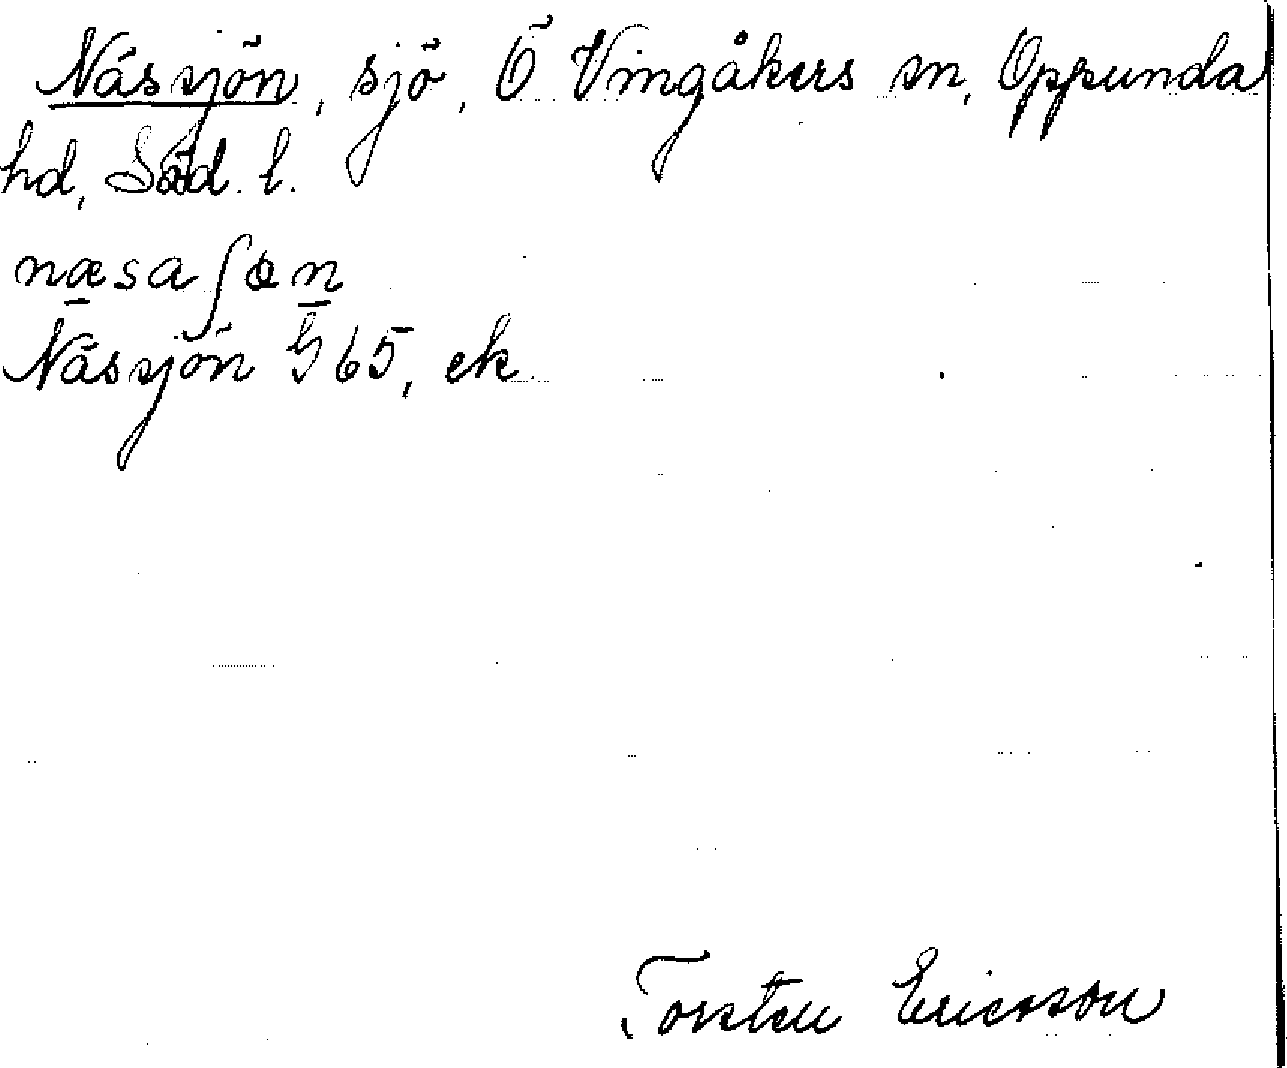 Nässjön, sjö, Ö Vingåkers sn, Oppunda
hd, Söd. l.
næsaʃɵn
Nässjön G 65, ek
Torsten Ericsson